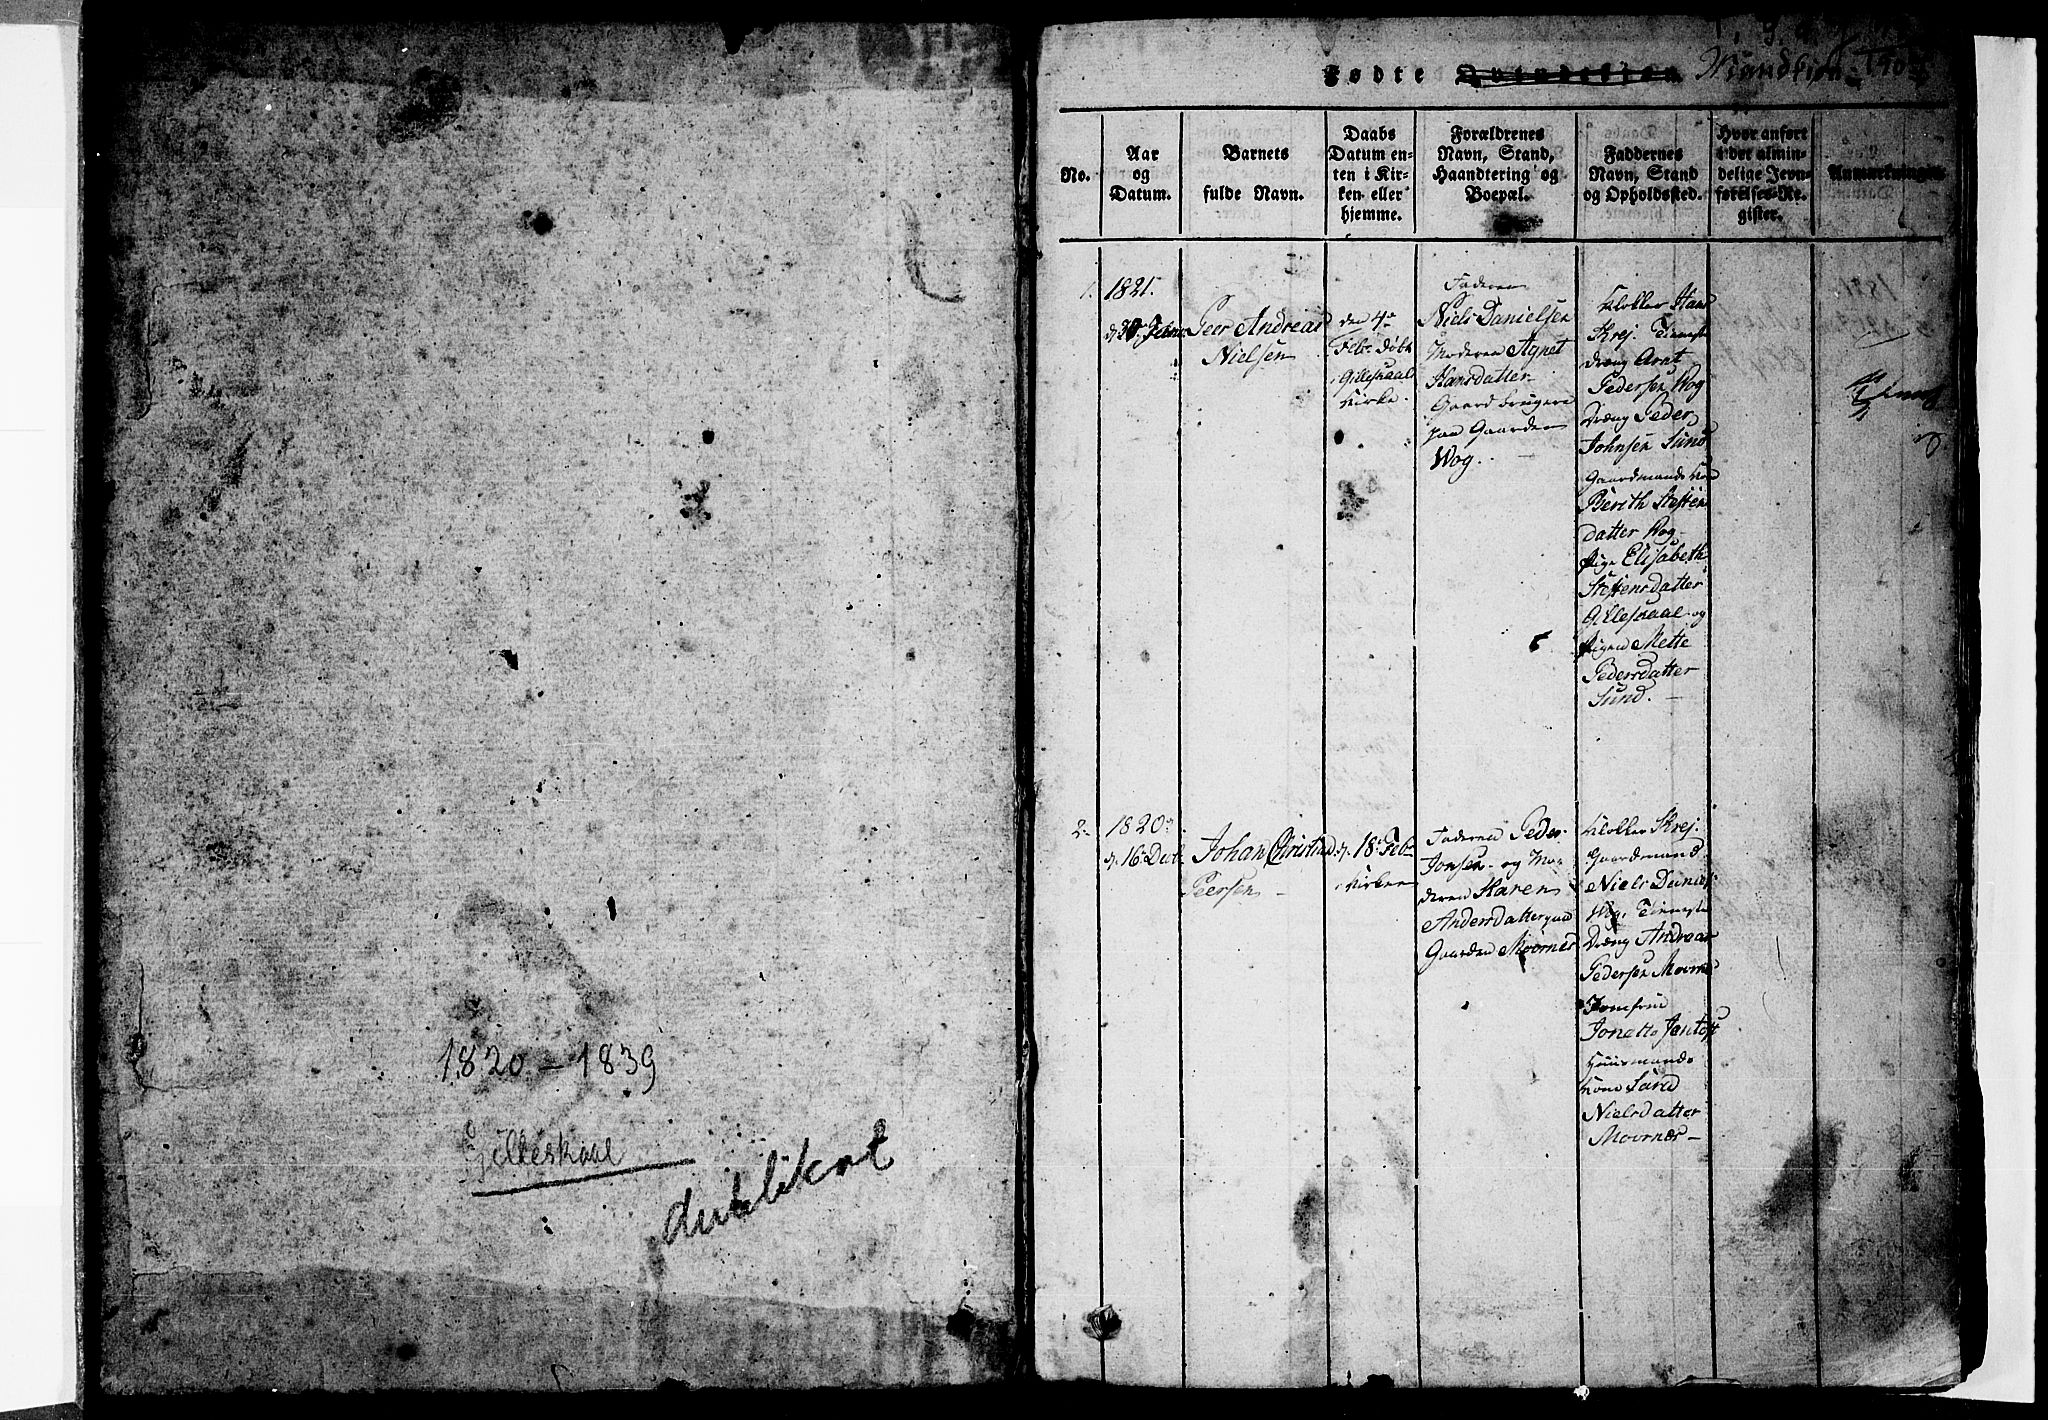 1820 – 1839
Gilleskaal
dublikat
Fødte Qvindekiøn Mandkiøn
No.
Aar
og
Datum.
Barnets
fulde Navn.
Daabs
Datum en-
ten i Kir-
ken eller
hjemme.
Forældrenes
Navn, Stand,
Haandtering og
Boepæl.
Faddernes
Navn, Stand
og Opholdssted.
Hvor anført
i det almin-
delige Jevn-
førelses-Re-
gister.
Anmærkninger.
1.
1821.
Peer Andreas
Nielsen
den 4de
Febr døbt
i Gilleskaals
Kirke.
Faderen
Niels Danielsen
Moderen Agnet
Hansdatter
Gaardbrugere
paa Gaarden
Wog.
Klokker Hans
Skrej. Tieneste
dræng Arnt
Pedersen Wog
Dræng Peder
Johnsen Sund
Gaardmands Kone
Berith Steffens
datter Wog
Pige Elisabeth
Steffensdatter
Gilleskaal og
Pigen Mette
Pedersdatter
Sund.
2.
1820
d. 16 Decbr
Johan Christian
Peersen
d. 18 Febr
i Kirken
Faderen Peder
Jonsen og Mo
deren Karen
Andersdatter paa
Gaarden Moornes
Klokker Skrej.
Gaardmand
Niels Daniels
Wog. Tieneste
Dræng Andreas
Pedersen Moornes
Jomfrue
Jonetta Jentoft
Huusmands
Kone Sara
Nielsdatter
Moornes